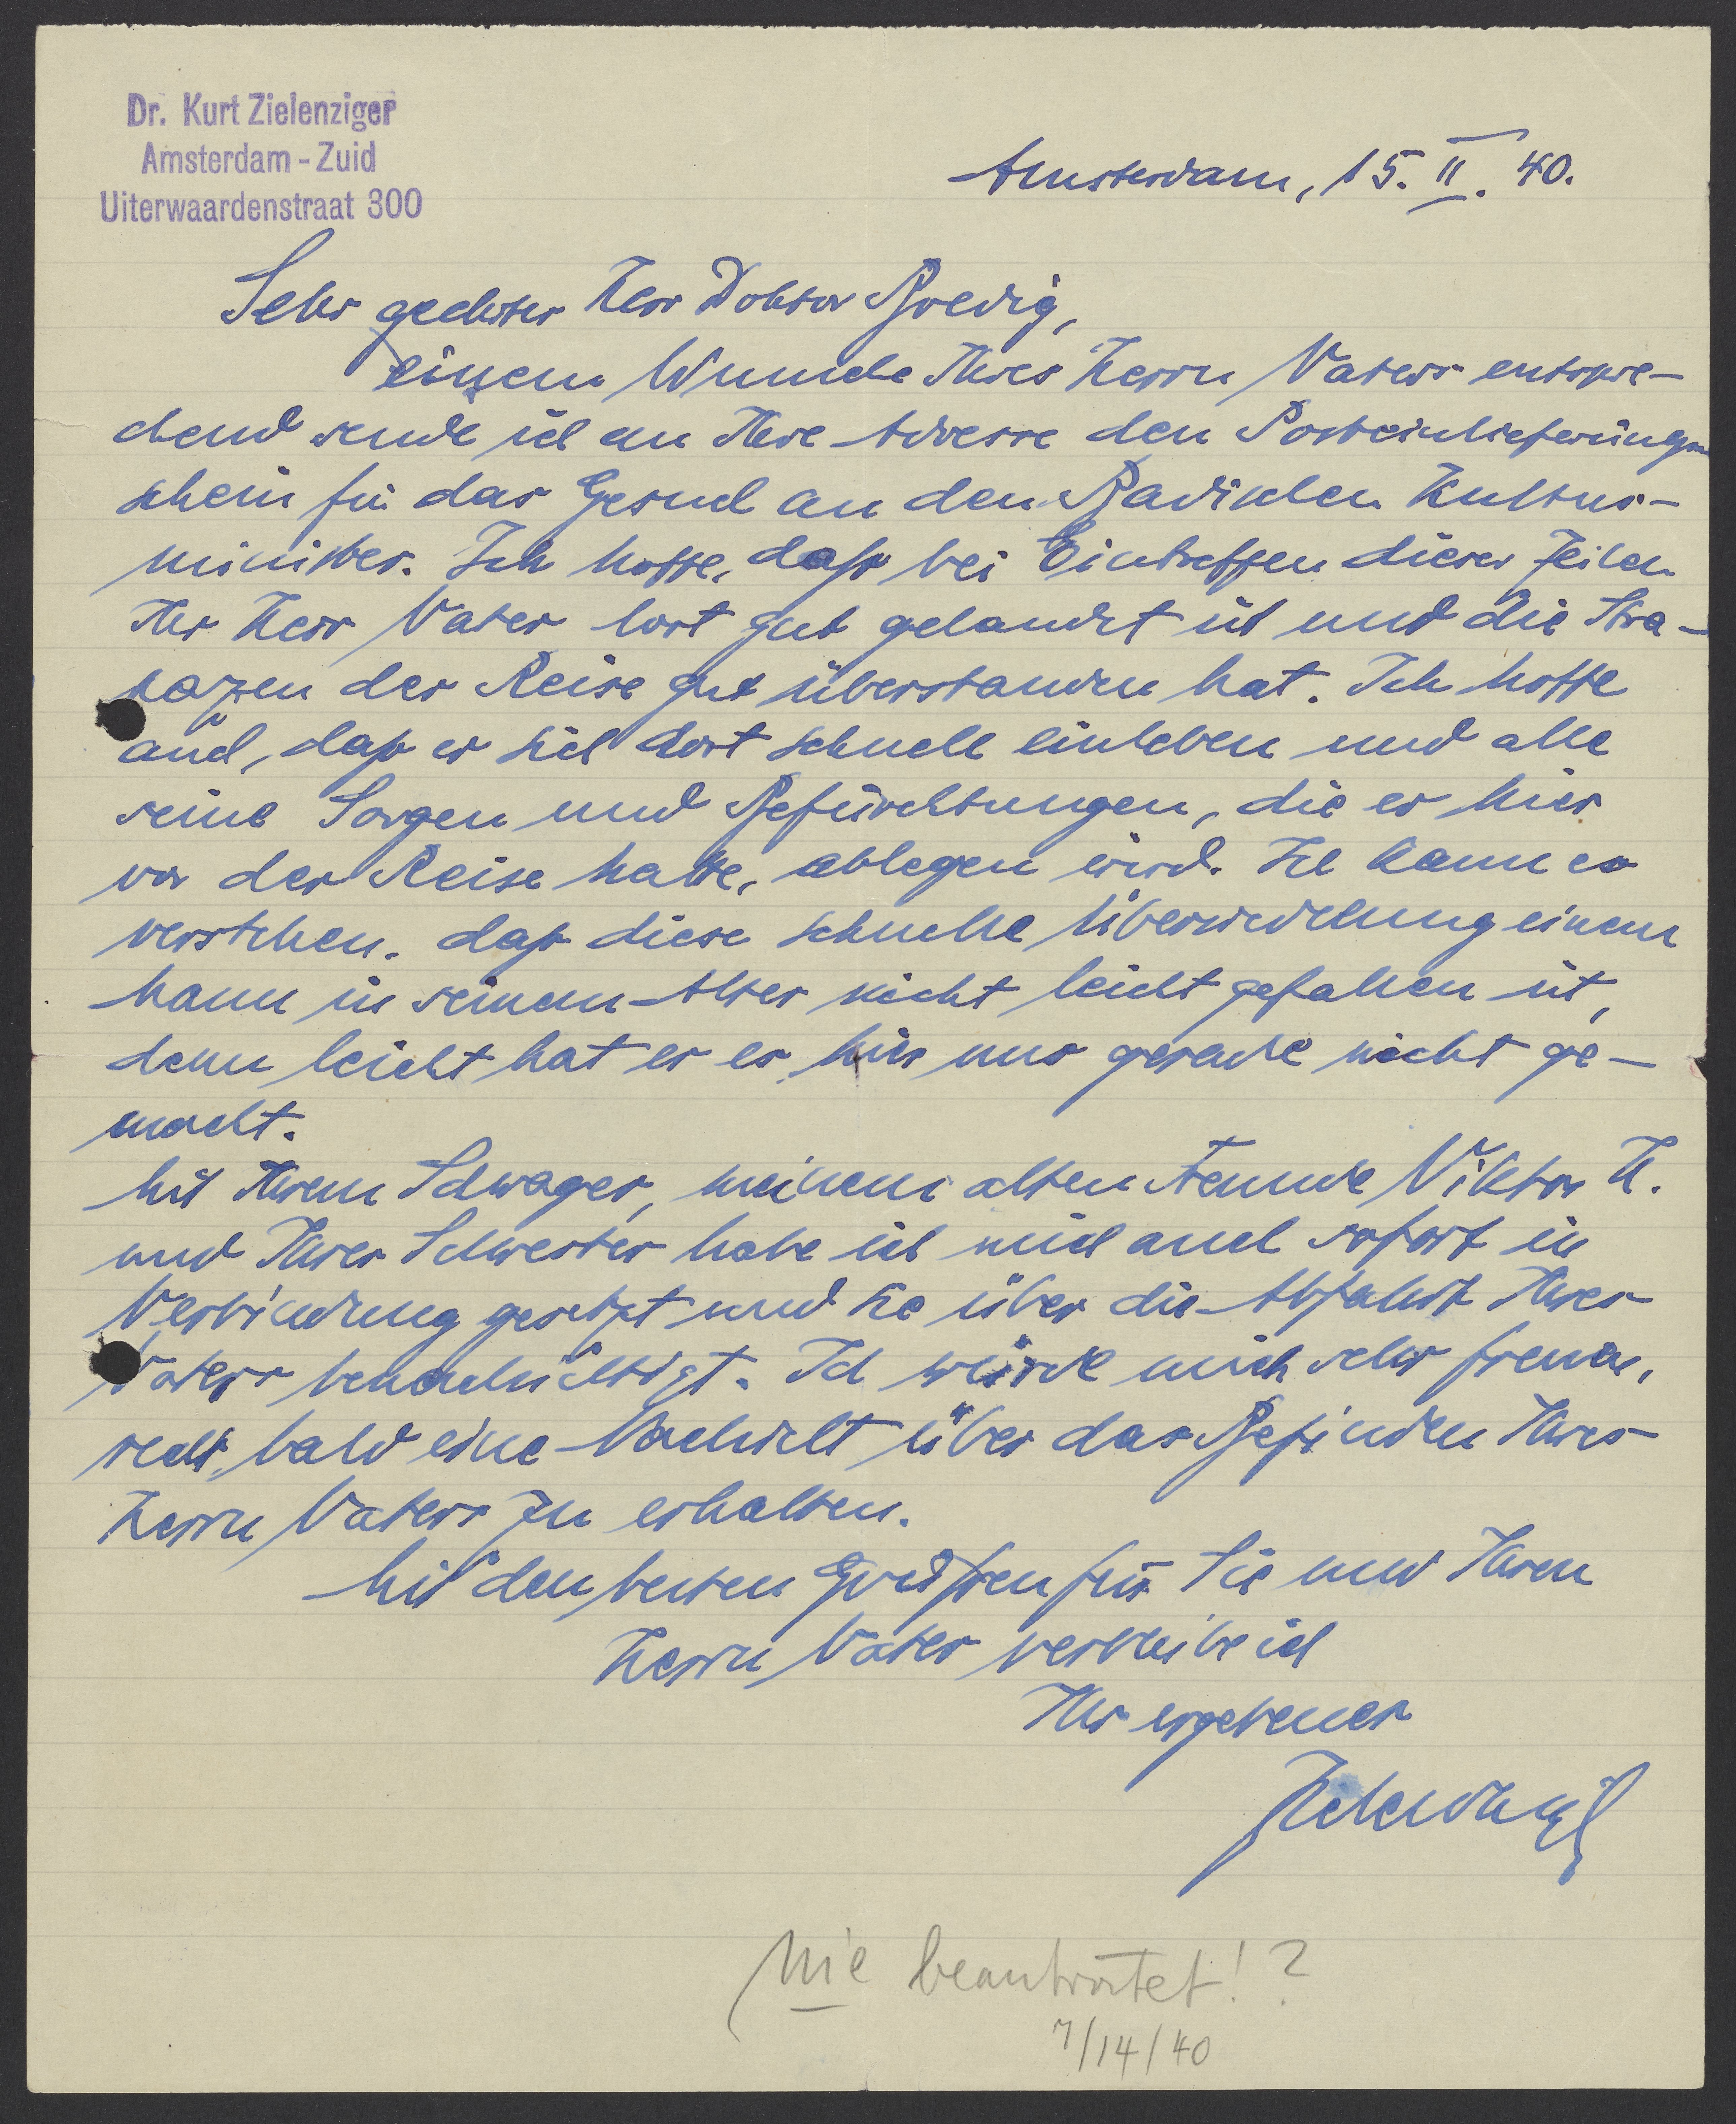 Dr. Kurt Zielenziger
Amsterdam - Zuid
Uiterwaardenstraat 300
Amsterdam, 15. II. 40.
Sehr geehrter Herr Doktor Bredig,
einem Wunsche Ihres Herrn Vaters entspre-
chend sende ich an Ihre Adresse den Posteinlieferungs
schein für das Gesuch an den Badischen Kultus-
minister. Ich hoffe, daß bei Eintreffen dieser Zeilen
Ihr Herr Vater dort gut gelandet ist und die Stra-
pazen der Reise gut überstanden hat. Ich hoffe
auch, daß er sich dort schnell einleben und alle
seine Sorgen und Befürchtungen, die er hier
vor der Reise hatte, ablegen wird. Ich kann es
verstehen, daß diese schnelle Übersiedelung einem
Mann in seinem Alter nicht leicht gefallen ist,
denn leicht hat er es hier uns gerade nicht ge-
macht.
Mit Ihrem Schwager, meinem alten Freunde Viktor H.
und Ihrer Schwester habe ich mich auch sofort in
Verbindung gesetzt und sie über die Abfahrt Ihres
Vaters benachrichtigt. Ich würde mich sehr freuen,
recht bald eine Nachricht über das Befinden Ihres
Herrn Vaters zu erhalten.
Mit den besten Grüßen für Sie und Ihren
Herrn Vater verbleibe ich
Ihr ergebener
Zielenziger
Nie beantwortet!?
7/14/40